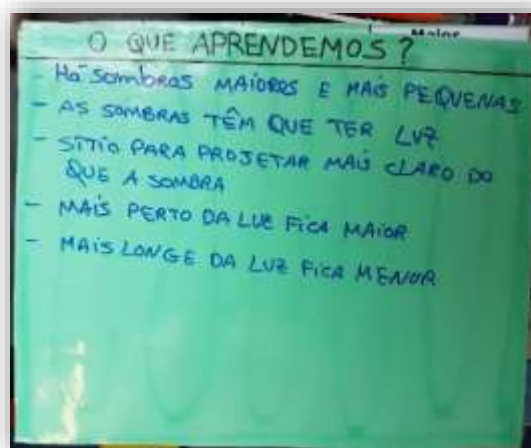 O QUE APRENDEMOS?
- Há sombras MAIORES E MAIS PEQUENAS
- AS SOMBRAS TÊM QUE TER LUZ
- SÍTIO PARA PROJETAR MAIS CLARO DO
QUE A SOMBRA
- MAIS PERTO DA LUZ FICA MAIOR
- MAIS LONGE DA LUZ FICA MENOR